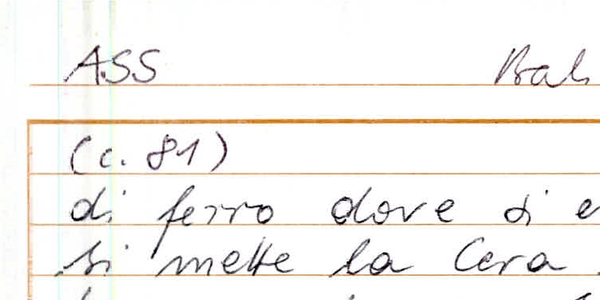 ASS Bal
(c. 81)
di ferro dove si
si mette la Cera